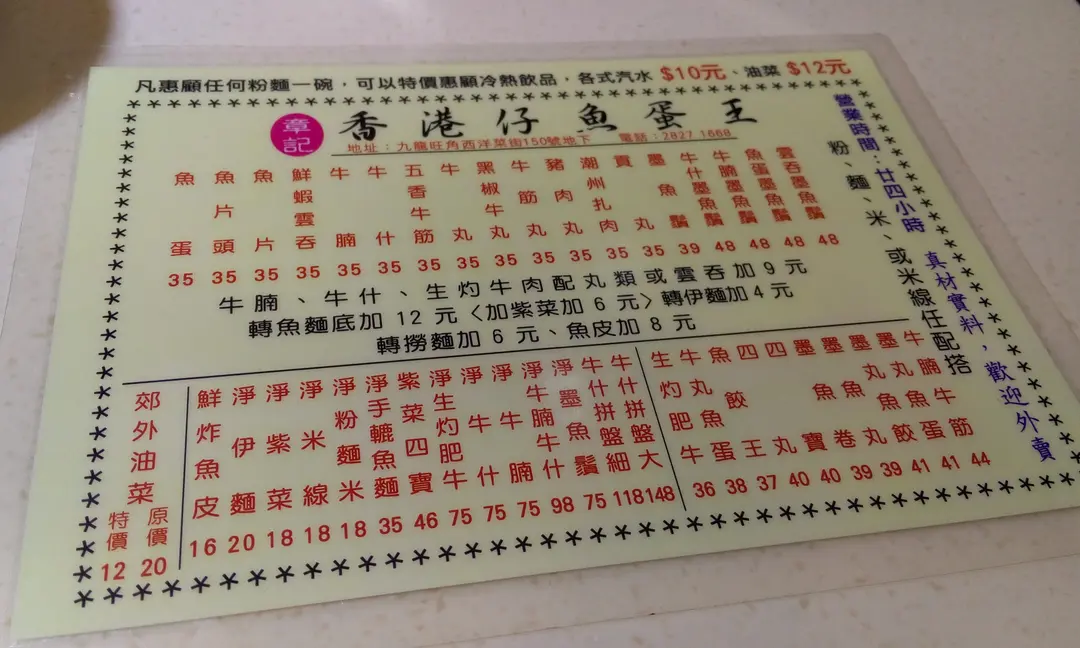 凡惠顧任何粉麵一碗，可以特價惠顧冷熱飲品，各式汽水 $10元、油菜 $12元
章記
香港仔魚蛋王
地址：九龍旺角西洋菜街150號地下 電話：2827 1668
魚蛋 35
魚片頭 35
魚片 35
鮮蝦雲吞 35
牛腩 35
牛什 35
五香牛筋 35
牛丸 35
黑椒牛丸 35
牛筋丸 35
豬肉丸 35
潮州扎肉 35
貢丸 35
墨魚丸 39
牛什墨魚鬚 48
牛腩墨魚鬚 48
魚蛋墨魚鬚 48
雲吞墨魚鬚 48
營業時間：廿四小時
粉、麵、米、或米線任配搭
真材實料，歡迎外賣
牛腩、牛什、生灼牛肉配丸類或雲吞加 9 元
轉魚麵底加 12 元〈加紫菜加 6 元〉轉伊麵加 4 元
轉撈麵加 6 元、魚皮加 8 元
郊外油菜
特價 12
原價 20
鮮炸魚皮 16
淨伊麵 20
淨紫菜 18
淨米線 18
淨粉麵米 18
淨手轆魚麵 35
紫菜四寶 46
淨生灼肥牛 75
淨牛什 75
淨牛腩 75
淨牛腩牛什 98
淨墨魚鬚 75
牛什拼盤細 118
牛什拼盤大 148
生灼肥牛 36
牛丸魚蛋 38
魚餃王 37
四丸 40
四寶 40
墨魚卷 39
墨魚丸 39
墨丸魚餃 41
墨丸魚蛋 41
牛腩牛筋 44